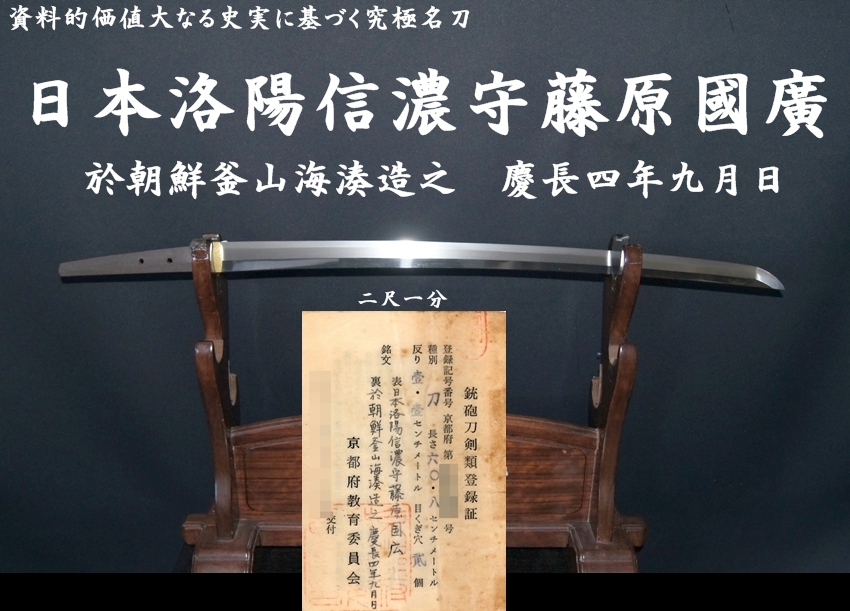 資料的価値大なる史実に基づく究極名刀
日本洛陽信濃守藤原國廣
於朝鮮釜山海湊造之　慶長四年九月日
二尺一分
銃砲刀剣類登録証
登録記号番号 京都府 第 号
種別 刀 長さ 六〇・八 センチメートル
反り 壹・壹 センチメートル 目くぎ穴 貳 個
銘文 表 日本洛陽信濃守藤原国広
裏 於朝鮮釜山海湊造之 慶長四年九月日
京都府教育委員会
交付